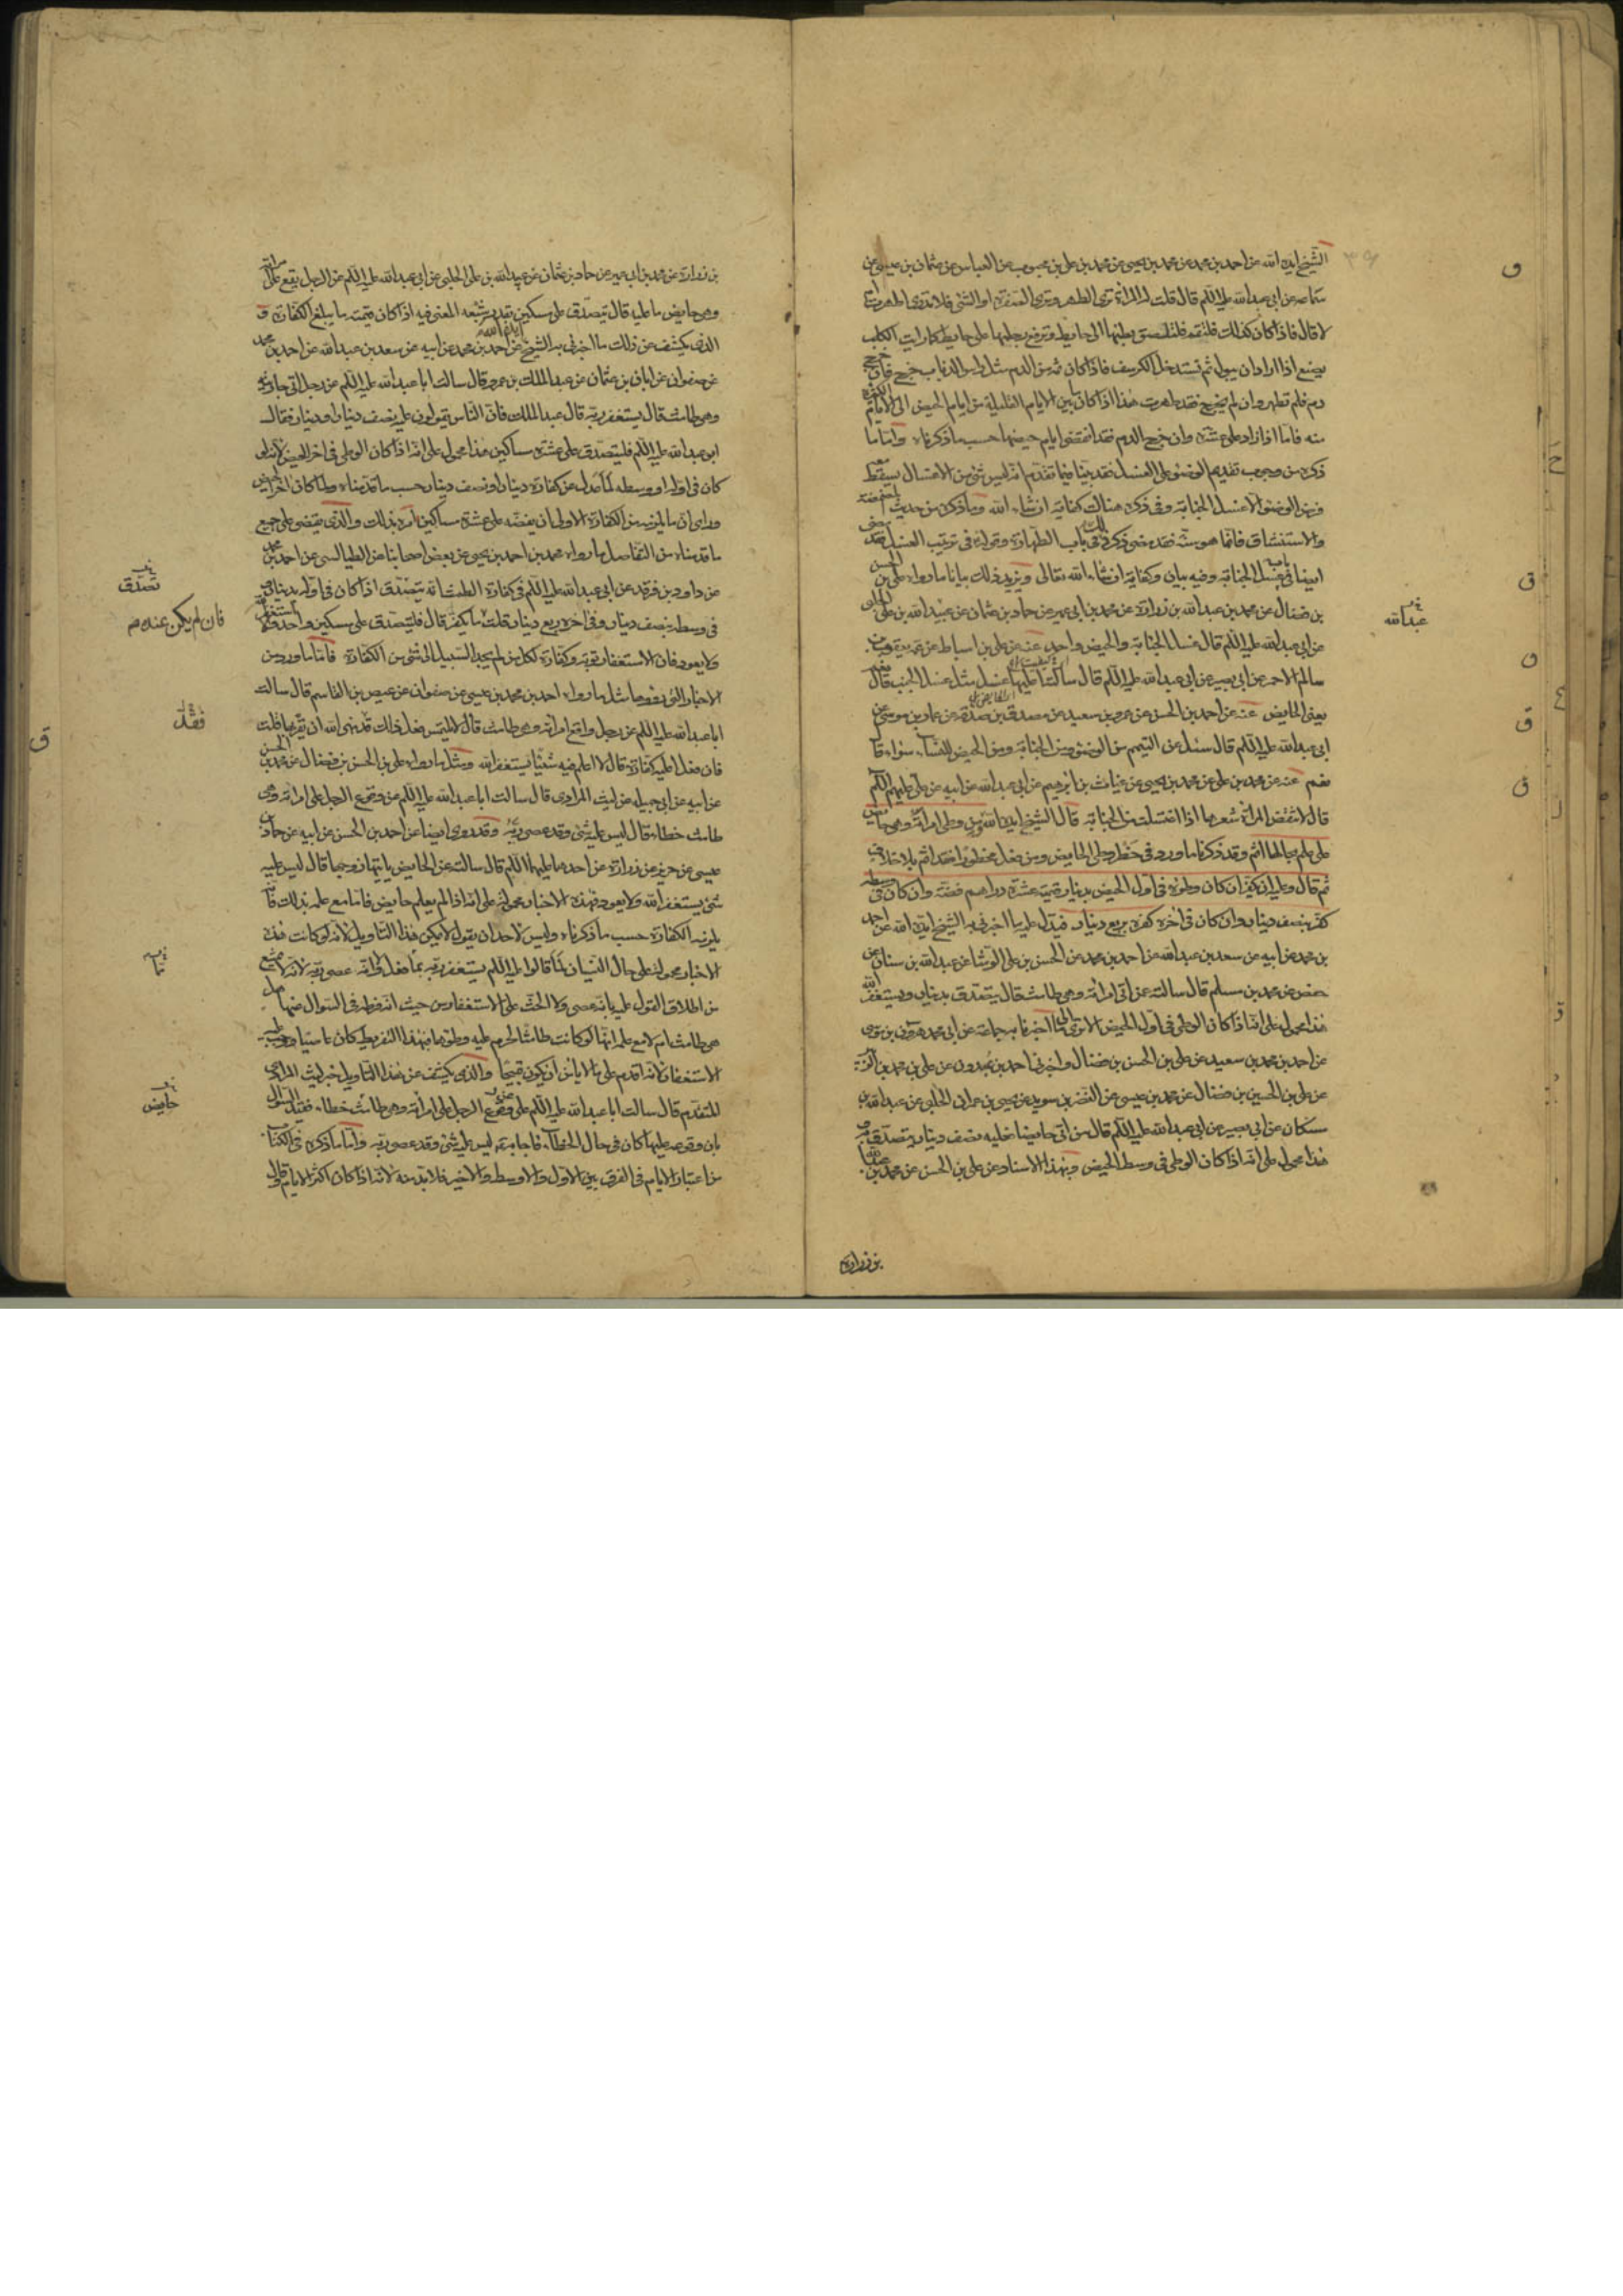 الشيخ ايده الله عن احمد بن محمد عن محمد بن يحيى عن محمد بن علي بن محبوب عن العباس عن عثمان بن عيسى عن
سماعه عن ابي عبد الله عليه السلم قال قلت له المراة ترى الطهر وترى الصفرة او الشئ فلا تدرى اطهرت ام
لا قال فاذا كان كذلك فلتقم فلتلصق بطنها الى حايط وترفع رجلها على حايط كما رايت الكلب
يصنع اذا اراد ان يبول ثم تستدخل الكرسف فاذا كان ثمه من الدم مثل راس الذباب خرج فان خرج
دم فلم تطهر وان لم يخرج فقد طهرت هذا اذا كان بين الايام القليلة من ايام الحيض الى الايام الكثيرة
منه فاما اذا زاد على عشرة وان خرج الدم فقد انقضى ايام حيضها حسب ما ذكرناه واما ما
ذكره من وجوب تقديم الوضوء على الغسل فقد بينا فيما تقدم انه ليس شئ من الاغسال يسقط معه
فرض الوضوء الا غسل الجنابة وفى ذكره هناك كفاية ان شاء الله وما ذكره من حديث المضمضة
والاستنشاق فانما هو سنة فقد مضى ذكر ذلك فى باب الطهارة وقوله فى ترتيب الغسل فقد مضى
ايضا فى باب غسل الجنابة وفيه بيان وكفاية ان شاء الله تعالى ويزيد ذلك بيانا ما رواه على بن الحسن
بن فضال عن محمد بن عبد الله بن زرارة عن محمد بن ابي عمير عن حماد بن عثمان عن عبيد الله بن على الحلبى
عن ابي عبد الله عليه السلم قال غسل الجنابة والحيض واحد عنه عن على بن اسباط عن عمه يعقوب بن
سالم الاحمر عن ابي بصير عن ابي عبد الله عليه السلم قال سالته اعليها غسل مثل غسل الجنب قال نعم
يعنى الحايض عنه عن احمد بن الحسن عن عمرو بن سعيد عن مصدق بن صدقة عن عمار بن موسى عن
ابى عبد الله عليه السلم قال سئل عن التيمم من الوضوء ومن الجنابة ومن الحيض للنساء سواء قال
نعم عنه عن محمد بن على عن محمد بن يحيى عن غياث بن ابرهيم عن ابي عبد الله عن ابيه عن على عليهم السلم
قال لا تنقض المراة شعرها اذا اغتسلت من الجنابة قال الشيخ ايده الله ومن وطى امراته وهى حايض
على علم بحالها اثم وقد ذكرنا ما ورد فى حظر وطى الحايض ومن فعل محظورا فقد اثم بلا خلاف
ثم قال وعليه ان يكفر ان كان وطؤه فى اول الحيض بدينار قيمته عشرة دراهم فضة وان كان فى وسطه
كفر بنصف دينار وان كان فى اخره كفر بربع دينار فيدل عليه ما اخبرنى به الشيخ ايده الله عن احمد
بن محمد عن ابيه عن سعد بن عبد الله عن احمد بن محمد عن الحسن بن على الوشا عن عبد الله بن سنان عن
حفص عن محمد بن مسلم قال سالته عمن اتى امراته وهى طامث قال يتصدق بدينار ويستغفر الله
هذا محمول على انه اذا كان الوطى فى اول الحيض الا ترى الى ما اخبرنا به جماعة عن ابى محمد هرون بن موسى
عن احمد بن محمد بن سعيد عن على بن الحسن بن فضال واخبرنى احمد بن عبدون عن على بن محمد بن الزبير
عن على بن الحسين بن فضال عن محمد بن عيسى عن النضر بن سويد عن يحيى بن عمران الحلبى عن عبد الله بن
مسكان عن ابى بصير عن ابى عبد الله عليه السلم قال من اتى حايضا فعليه نصف دينار يتصدق به
هذا محمول على انه اذا كان الوطى فى وسط الحيض وبهذا الاسناد عن على بن الحسن عن محمد بن عبد الله
بن زرارة
عبد الله
بن زرارة عن محمد بن ابى عمير عن حماد بن عثمان عن عبيد الله بن على الحلبى عن ابى عبد الله عليه السلم عن الرجل يقع على امراته
وهى حايض ما عليه قال يتصدق على مسكين بقدر شبعه المعنى فيه اذا كان قيمته ما يبلغ الكفارة و
الذى يكشف عن ذلك ما اخبرنى به الشيخ ايده الله عن احمد بن محمد عن ابيه عن سعد بن عبد الله عن احمد بن محمد
عن صفوان عن ابان بن عثمان عن عبد الملك بن عمرو قال سالت ابا عبد الله عليه السلم عن رجل اتى جاريته
وهى طامث قال يستغفر ربه قال عبد الملك فان الناس يقولون عليه نصف دينار او دينار فقال
ابو عبد الله عليه السلم فليتصدق على عشرة مساكين هذا محمول على انه اذا كان الوطى فى اخر الحيض لانه لو
كان فى اوله او وسطه لما عدل عن كفارة دينار او نصف دينار حسب ما قدمناه ولما كان اخر الحيض
وراى ان ما يلزمه من الكفارة الاولى ان يفضه على عشرة مساكين امره بذلك والذى يقضى على جميع
ما قدمناه من التفاصيل ما رواه محمد بن احمد بن يحيى عن بعض اصحابنا عن الطيالسى عن احمد بن محمد
عن داود بن فرقد عن ابى عبد الله عليه السلم فى كفارة الطمث انه يتصدق اذا كان فى اوله بدينار و
فى وسطه بنصف دينار وفى اخره ربع دينار قلت ما يكفر قال فليتصدق على مسكين واحد والا استغفر الله
ولا يعود فان الاستغفار توبة وكفارة لكل من لم يجد السبيل الى شئ من الكفارة فاما ما ورد من
الاخبار التى مثل ما رواه احمد بن محمد بن عيسى عن صفوان عن عيص بن القاسم قال سالت
ابا عبد الله عليه السلم عن رجل واقع امراته وهى طامث قال لا يلتمس فعل ذلك قد نهى الله ان يقربها قلت
فان فعل اعليه كفارة قال لا اعلم فيه شيئا يستغفر الله ومثل ما رواه على بن الحسن بن فضال عن محمد بن الحسن
عن ابيه عن ابى جميلة عن ليث المرادى قال سالت ابا عبد الله عليه السلم عن وقوع الرجل على امراته وهى
طامث خطاء قال ليس عليه شئ وقد عصى ربه وقد روى ايضا عن احمد بن الحسن عن ابيه عن حماد بن
عيسى عن حريز عن زرارة عن احدهما عليهما السلم قال سالته عن الحايض ياتيها زوجها قال ليس عليه
شئ يستغفر الله ولا يعود فهذه الاخبار محمولة على انه اذا لم يعلم حايض فاما مع علمه بذلك فانه
يلزمه الكفارة حسب ما ذكرناه وليس لاحد ان يقول لا يمكن هذا التاويل لانه لو كانت هذه
الاخبار محمولة على حال النسيان لما قالوا عليهم السلم يستغفر ربه مما فعل ولانه عصى ربه لانه لا يمتنع
من اطلاق القول عليه بانه عصى ولا الحث على الاستغفار من حيث انه فرط فى السوال عنها هل
هى طامث ام لا مع علمه انها لو كانت طامثا لحرم عليه وطؤها فبهذا التفريط كان عاصيا ووجب عليه
الاستغفار لانه اقدم على ما لا يامن ان يكون قبيحا والذى يكشف عن هذا التاويل خبر ليث المرادى
المتقدم قال سالت ابا عبد الله عليه السلم عن وقوع الرجل على امراته وهى طامث خطاء فقيد السوال
بان وقوعه عليها كان فى حال الخطاء فاجابه عليه ليس عليه شئ وقد عصى ربه واما ما ذكره فى الكتاب
من اعتبار الايام فى الفرق بين الاول والاوسط والاخير فلا بد منه لانه اذا كان اكثر الايام
تصدق
فان لم يكن عنده م
فقد
حايض